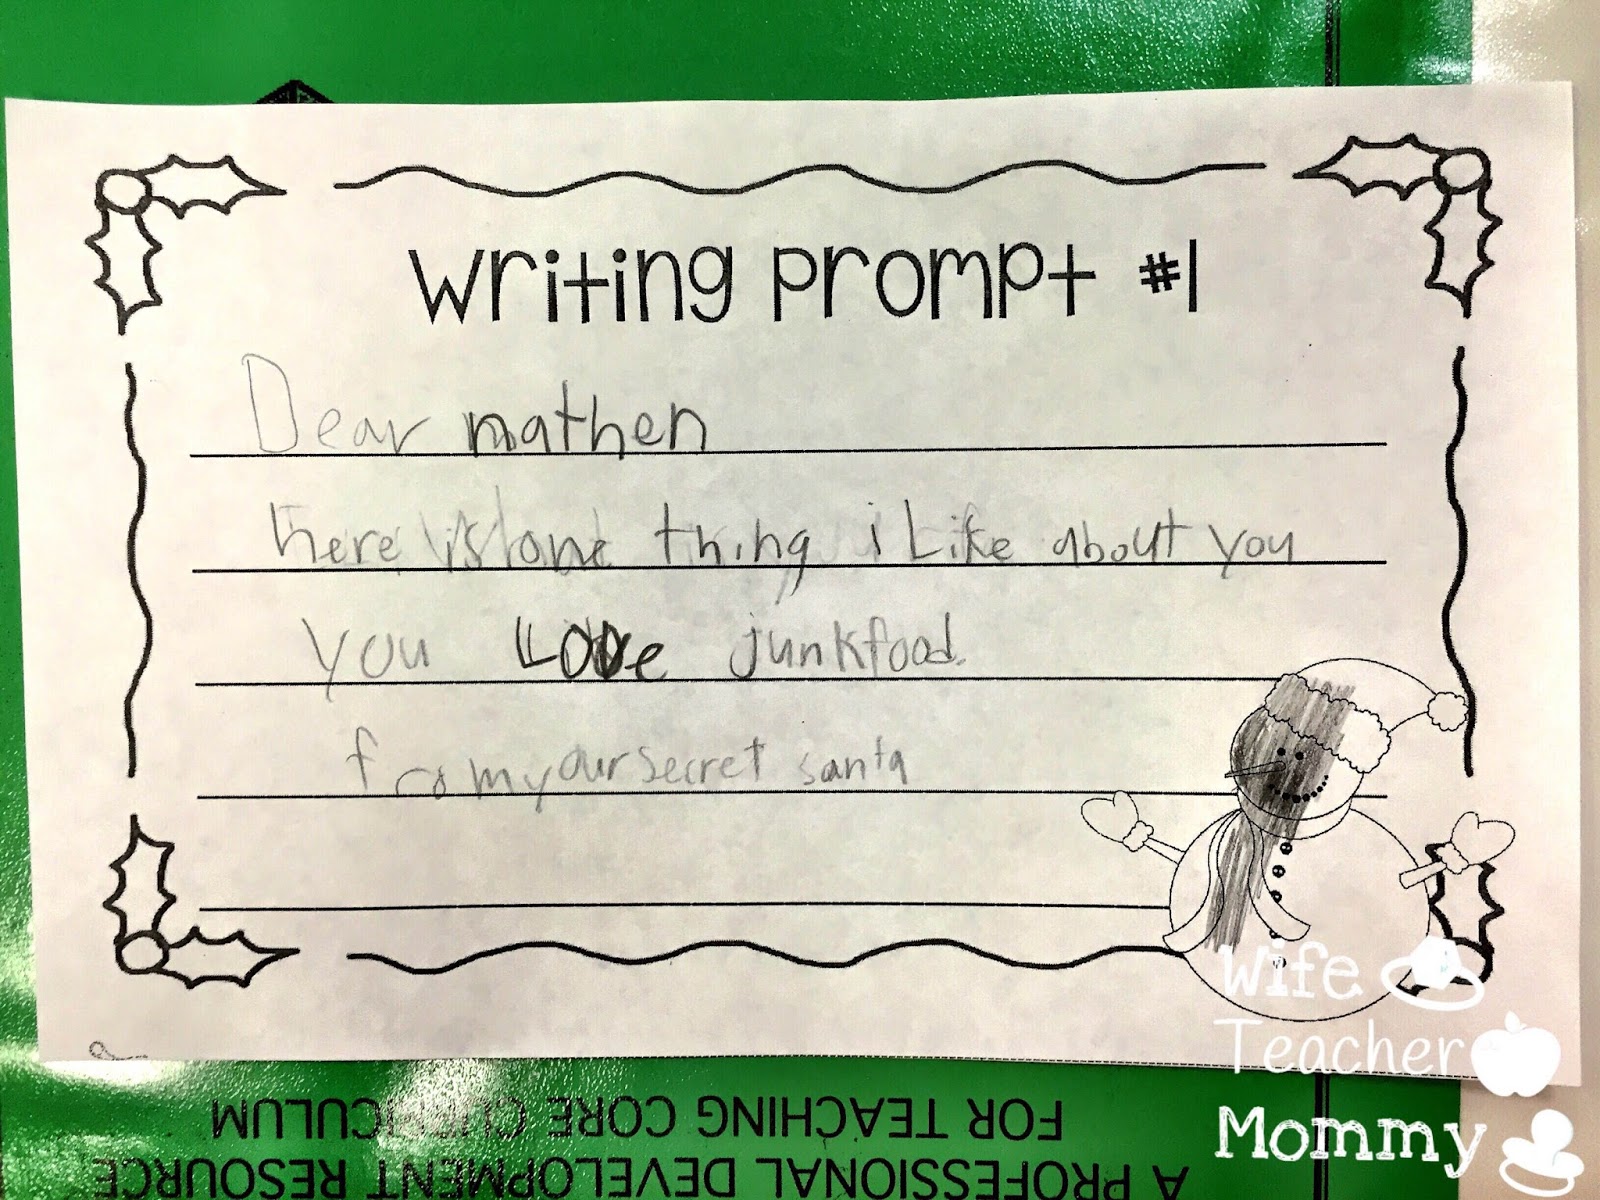 Writing Prompt #1
Dear mathen
here is one thing i Like about you
you LOVe junkfood.
from your secret santa
Wife
Teacher
Mommy
FOR TEACHING CORE CURRICULUM
A PROFESSIONAL DEVELOPMENT RESOURCE